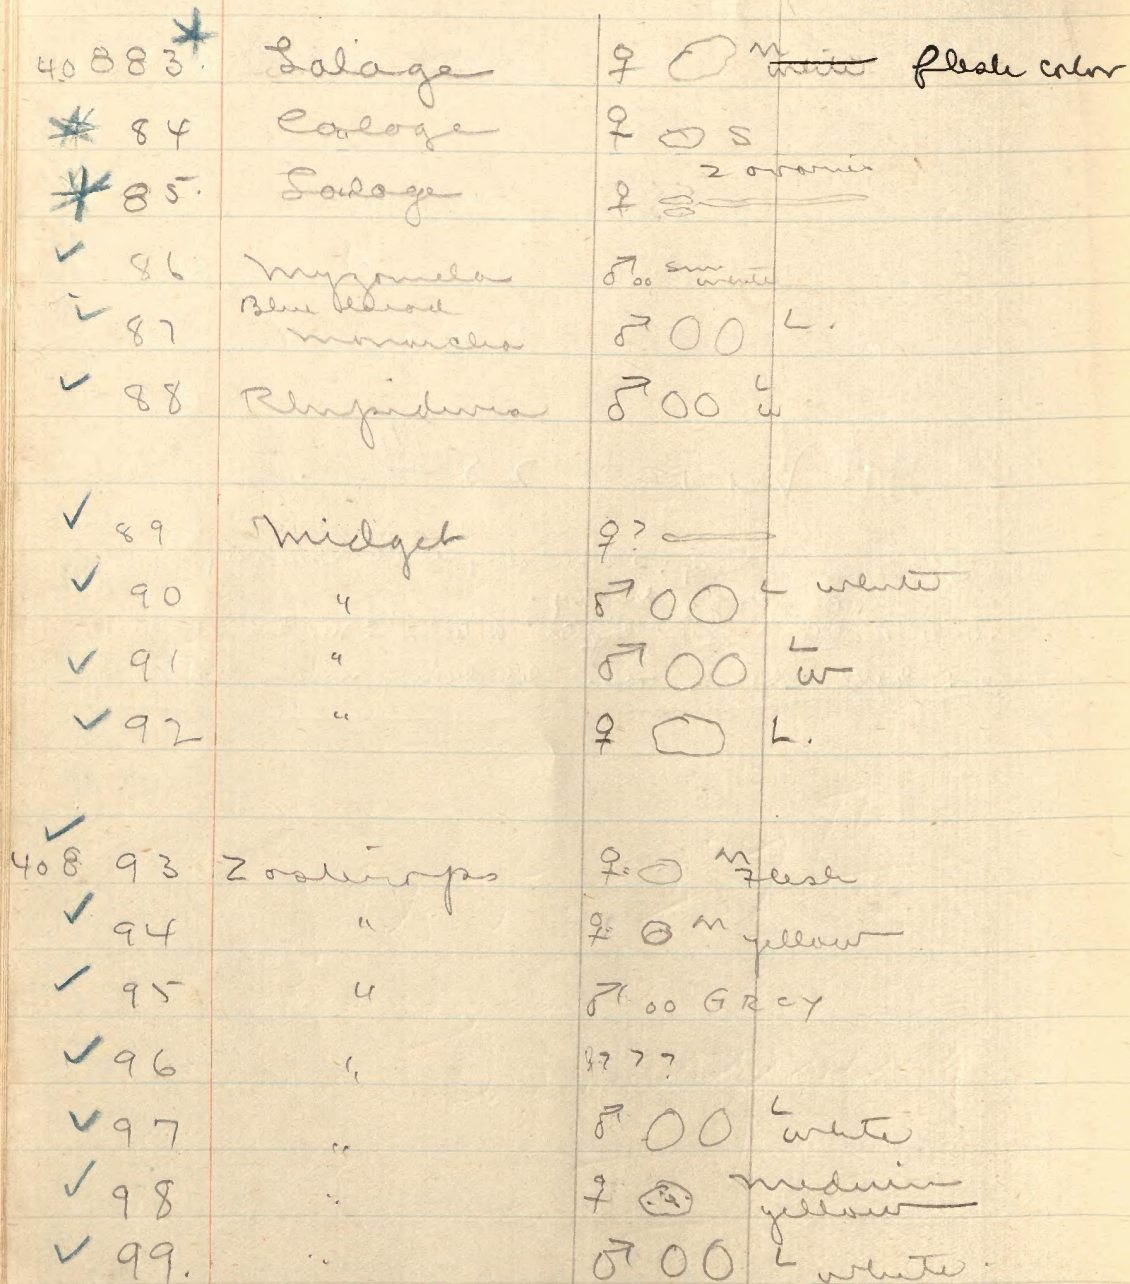 40883. Lalage ♀ M ~~white~~ flesh color
84 Lalage ♀ S
2 ovaries
85. Lalage ♀
86 Myzomela ♂ sm white
Blue Head
87 Monarcha ♂ L.
88 Rhipidura ♂ L w
89 Midget ♀?
90 " ♂ L white
91 " ♂ L w
92 " ♀ L.
40893 Zosterops ♀ M Flesh
94 " ♀ M yellow
95 " ♂ GRAY
96 " ? ? ?
97 " ♂ L white
98 " ♀ Medium yellow
99. " ♂ L white.